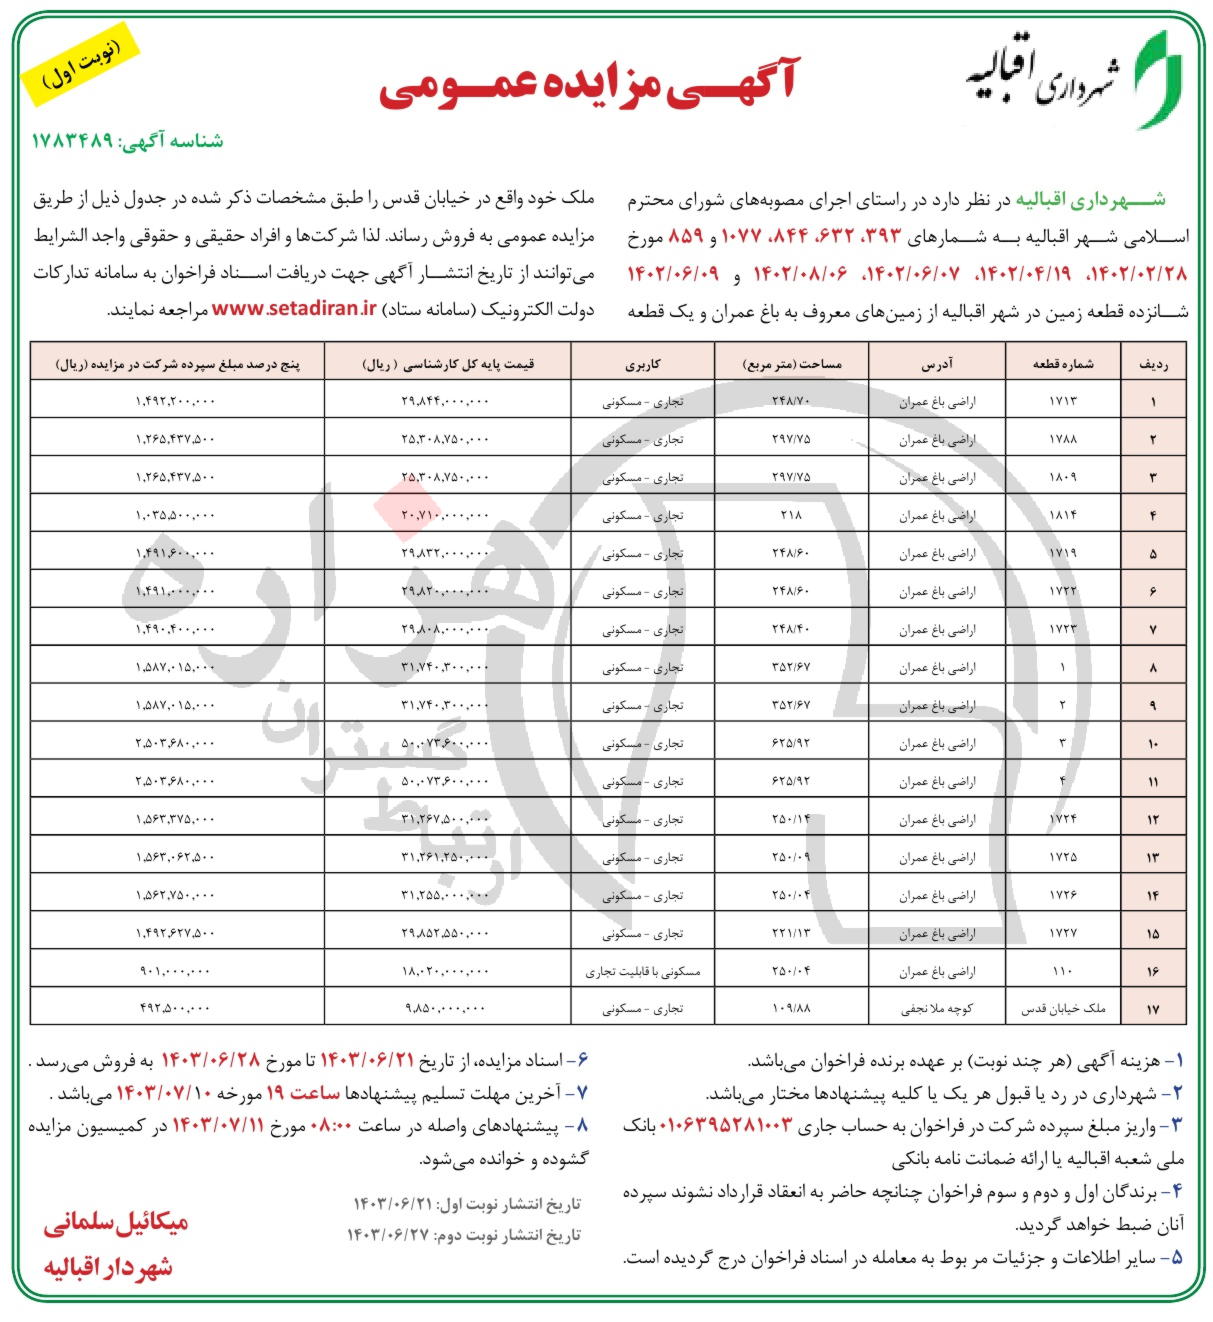 شهرداری اقبالیه
(نوبت اول)
آگهـی مزایده عمـومی
شناسه آگهی: ۱۷۸۳۴۸۹
شـــهرداری اقبالیه در نظر دارد در راستای اجرای مصوبه‌های شورای محترم
اسـلامی شـهر اقبالیه بـه شـمارهای ۳۹۳، ۶۳۲، ۸۴۴، ۱۰۷۷ و ۸۵۹ مورخ
۱۴۰۲/۰۲/۲۸، ۱۴۰۲/۰۴/۱۹، ۱۴۰۲/۰۶/۰۷، ۱۴۰۲/۰۸/۰۶ و ۱۴۰۲/۰۶/۰۹
شـانزده قطعه زمین در شهر اقبالیه از زمین‌های معروف به باغ عمران و یک قطعه
ملک خود واقع در خیابان قدس را طبق مشخصات ذکر شده در جدول ذیل از طریق
مزایده عمومی به فروش رساند. لذا شرکت‌ها و افراد حقیقی و حقوقی واجد الشرایط
می‌توانند از تاریخ انتشـار آگهی جهت دریافت اسـناد فراخوان به سامانه تدارکات
دولت الکترونیک (سامانه ستاد) www.setadiran.ir مراجعه نمایند.
ردیف شماره قطعه آدرس مساحت (متر مربع) کاربری قیمت پایه کل کارشناسی (ریال) پنج درصد مبلغ سپرده شرکت در مزایده (ریال)
۱ ۱۷۱۳ اراضی باغ عمران ۲۴۸/۷۰ تجاری - مسکونی ۲۹,۸۴۴,۰۰۰,۰۰۰ ۱,۴۹۲,۲۰۰,۰۰۰
۲ ۱۷۸۸ اراضی باغ عمران ۲۹۷/۷۵ تجاری - مسکونی ۲۵,۳۰۸,۷۵۰,۰۰۰ ۱,۲۶۵,۴۳۷,۵۰۰
۳ ۱۸۰۹ اراضی باغ عمران ۲۹۷/۷۵ تجاری - مسکونی ۲۵,۳۰۸,۷۵۰,۰۰۰ ۱,۲۶۵,۴۳۷,۵۰۰
۴ ۱۸۱۴ اراضی باغ عمران ۲۱۸ تجاری - مسکونی ۲۰,۷۱۰,۰۰۰,۰۰۰ ۱,۰۳۵,۵۰۰,۰۰۰
۵ ۱۷۱۹ اراضی باغ عمران ۲۴۸/۶۰ تجاری - مسکونی ۲۹,۸۳۲,۰۰۰,۰۰۰ ۱,۴۹۱,۶۰۰,۰۰۰
۶ ۱۷۲۲ اراضی باغ عمران ۲۴۸/۶۰ تجاری - مسکونی ۲۹,۸۲۰,۰۰۰,۰۰۰ ۱,۴۹۱,۰۰۰,۰۰۰
۷ ۱۷۲۳ اراضی باغ عمران ۲۴۸/۴۰ تجاری - مسکونی ۲۹,۸۰۸,۰۰۰,۰۰۰ ۱,۴۹۰,۴۰۰,۰۰۰
۸ ۱ اراضی باغ عمران ۳۵۲/۶۷ تجاری - مسکونی ۳۱,۷۴۰,۳۰۰,۰۰۰ ۱,۵۸۷,۰۱۵,۰۰۰
۹ ۲ اراضی باغ عمران ۳۵۲/۶۷ تجاری - مسکونی ۳۱,۷۴۰,۳۰۰,۰۰۰ ۱,۵۸۷,۰۱۵,۰۰۰
۱۰ ۳ اراضی باغ عمران ۶۲۵/۹۲ تجاری - مسکونی ۵۰,۰۷۳,۶۰۰,۰۰۰ ۲,۵۰۳,۶۸۰,۰۰۰
۱۱ ۴ اراضی باغ عمران ۶۲۵/۹۲ تجاری - مسکونی ۵۰,۰۷۳,۶۰۰,۰۰۰ ۲,۵۰۳,۶۸۰,۰۰۰
۱۲ ۱۷۲۴ اراضی باغ عمران ۲۵۰/۱۴ تجاری - مسکونی ۳۱,۲۶۷,۵۰۰,۰۰۰ ۱,۵۶۳,۳۷۵,۰۰۰
۱۳ ۱۷۲۵ اراضی باغ عمران ۲۵۰/۰۹ تجاری - مسکونی ۳۱,۲۶۱,۲۵۰,۰۰۰ ۱,۵۶۳,۰۶۲,۵۰۰
۱۴ ۱۷۲۶ اراضی باغ عمران ۲۵۰/۰۴ تجاری - مسکونی ۳۱,۲۵۵,۰۰۰,۰۰۰ ۱,۵۶۲,۷۵۰,۰۰۰
۱۵ ۱۷۲۷ اراضی باغ عمران ۲۲۱/۱۳ تجاری - مسکونی ۲۹,۸۵۲,۵۵۰,۰۰۰ ۱,۴۹۲,۶۲۷,۵۰۰
۱۶ ۱۱۰ اراضی باغ عمران ۲۵۰/۰۴ مسکونی با قابلیت تجاری ۱۸,۰۲۰,۰۰۰,۰۰۰ ۹۰۱,۰۰۰,۰۰۰
۱۷ ملک خیابان قدس کوچه ملا نجفی ۱۰۹/۸۸ تجاری - مسکونی ۹,۸۵۰,۰۰۰,۰۰۰ ۴۹۲,۵۰۰,۰۰۰
هزاره
گستران
ارتباط
۱- هزینه آگهی (هر چند نوبت) بر عهده برنده فراخوان می‌باشد.
۲- شهرداری در رد یا قبول هر یک یا کلیه پیشنهادها مختار می‌باشد.
۳- واریز مبلغ سپرده شرکت در فراخوان به حساب جاری ۰۱۰۶۳۹۵۲۸۱۰۰۳ بانک
ملی شعبه اقبالیه یا ارائه ضمانت نامه بانکی
۴- برندگان اول و دوم و سوم فراخوان چنانچه حاضر به انعقاد قرارداد نشوند سپرده
آنان ضبط خواهد گردید.
۵- سایر اطلاعات و جزئیات مر بوط به معامله در اسناد فراخوان درج گردیده است.
۶- اسناد مزایده، از تاریخ ۱۴۰۳/۰۶/۲۱ تا مورخ ۱۴۰۳/۰۶/۲۸ به فروش می‌رسد .
۷- آخرین مهلت تسلیم پیشنهادها ساعت ۱۹ مورخه ۱۴۰۳/۰۷/۱۰ می‌باشد .
۸- پیشنهادهای واصله در ساعت ۰۸:۰۰ مورخ ۱۴۰۳/۰۷/۱۱ در کمیسیون مزایده
گشوده و خوانده می‌شود.
تاریخ انتشار نوبت اول: ۱۴۰۳/۰۶/۲۱
تاریخ انتشار نوبت دوم: ۱۴۰۳/۰۶/۲۷
میکائیل سلمانی
شهردار اقبالیه